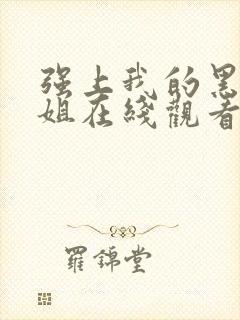 强上我的黑
姐在綫觀看
羅錦堂